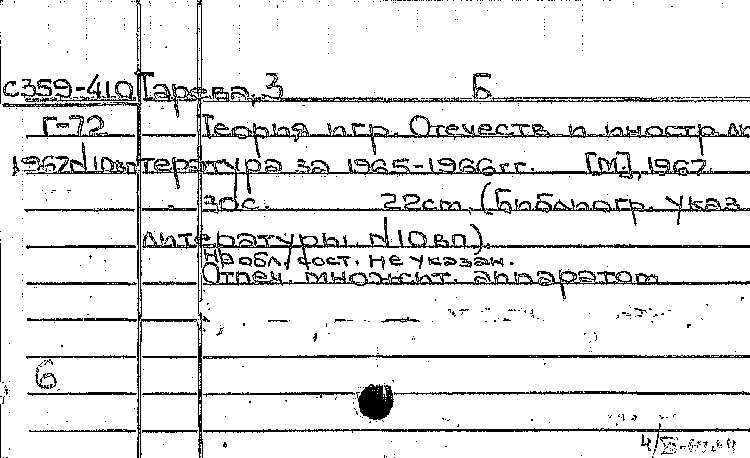 С359-410 Гарева, З Б
Г-72 Теория игр. Отечеств и иностр ли
1967 N10вп тература за 1965-1966гг. [М.], 1967.
30с. 22ст. (Библиогр. указ
литературы. N10 вп).
Отпеч. множит. аппаратом
6